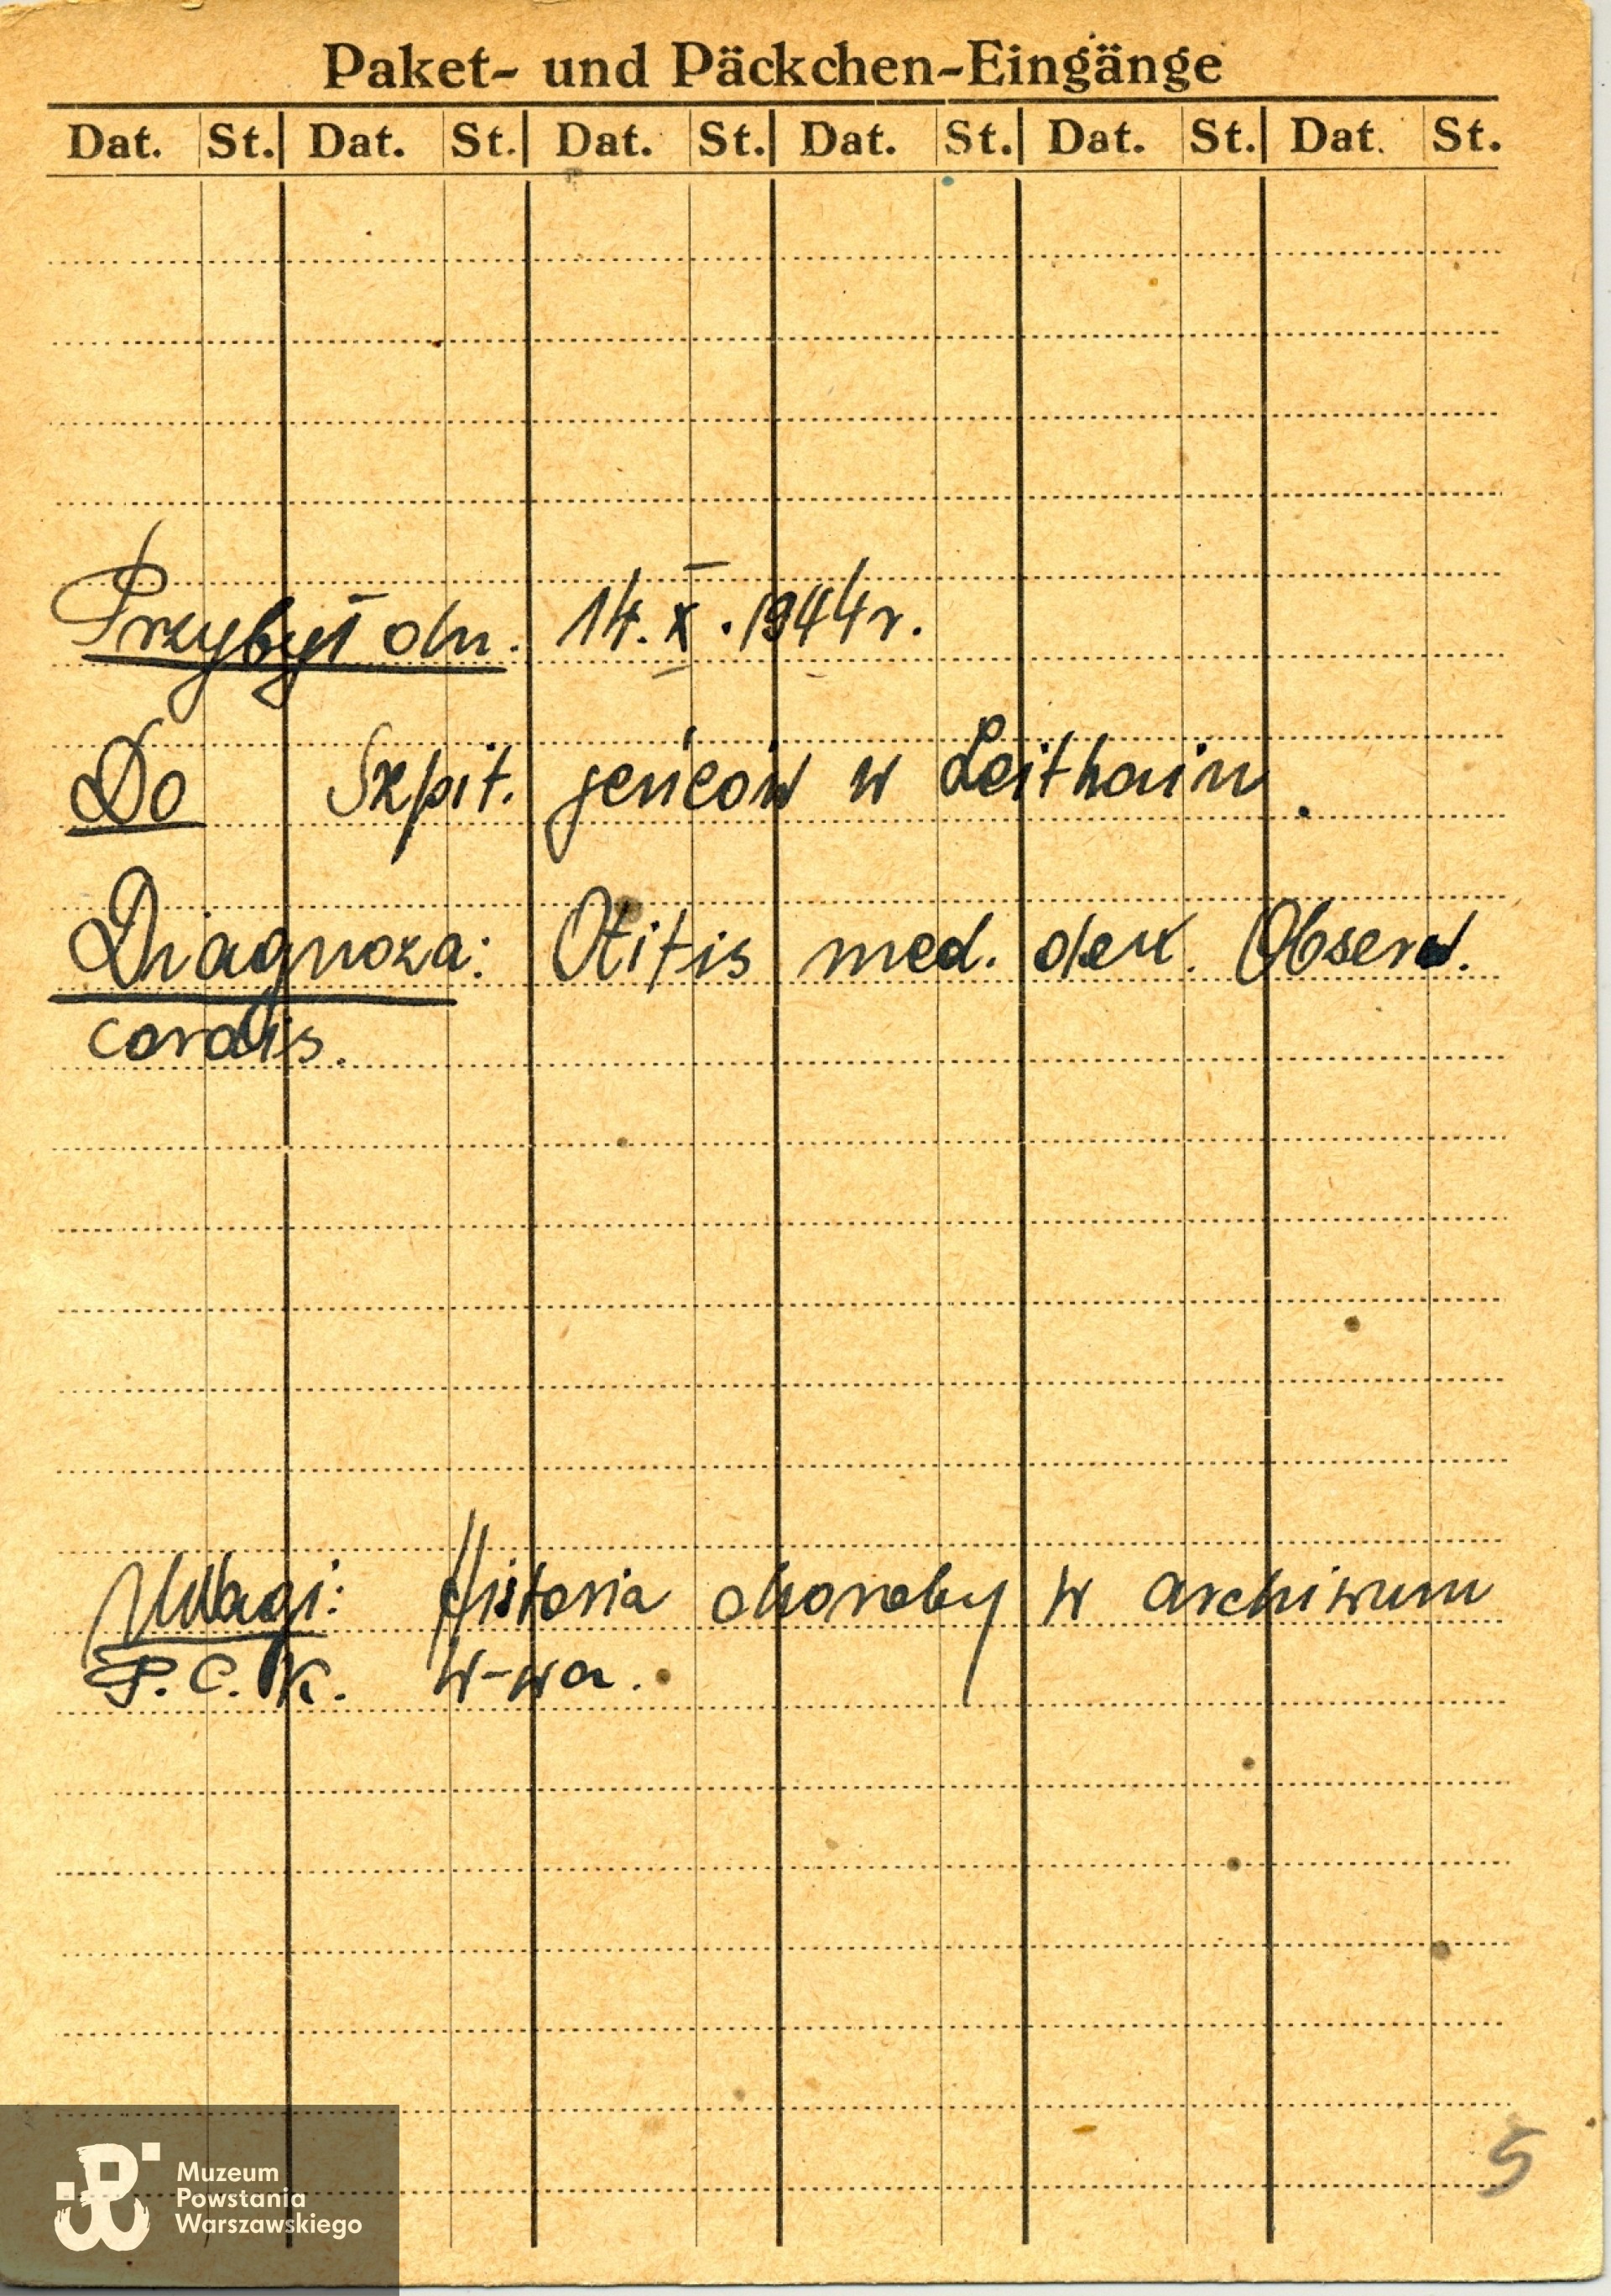 Paket- und Päckchen-Eingänge
Dat. St. Dat. St. Dat. St. Dat. St. Dat. St. Dat. St.
Przybył dn. 14.X.1944r.
Do Szpit. jeńców w Zeithain.
Diagnoza: Otitis med. dex. Obserw.
cordis.
Uwagi: Historia choroby w archiwum
P.C.K. W-wa.
5
Muzeum
Powstania
Warszawskiego